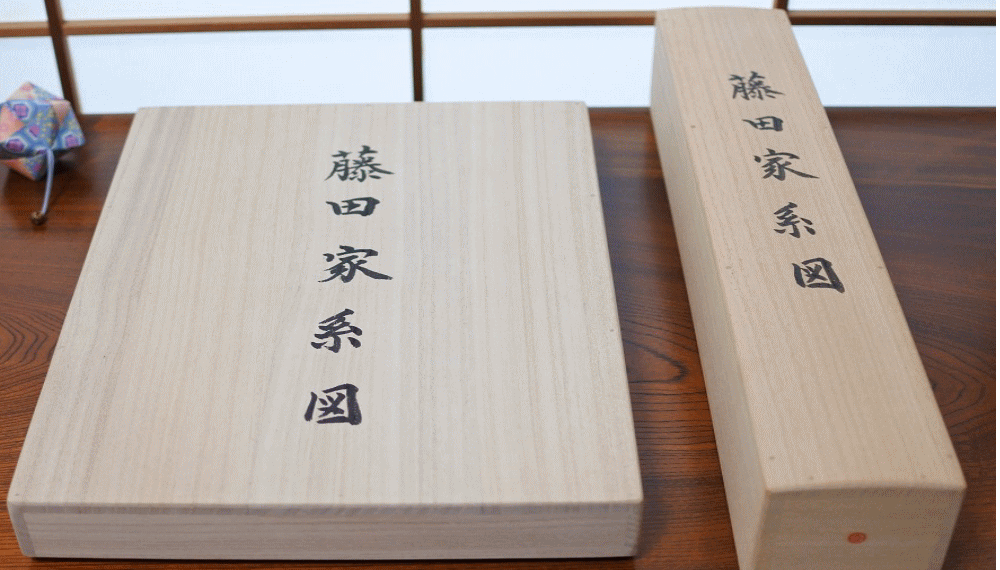 藤田家系図
藤田家系図